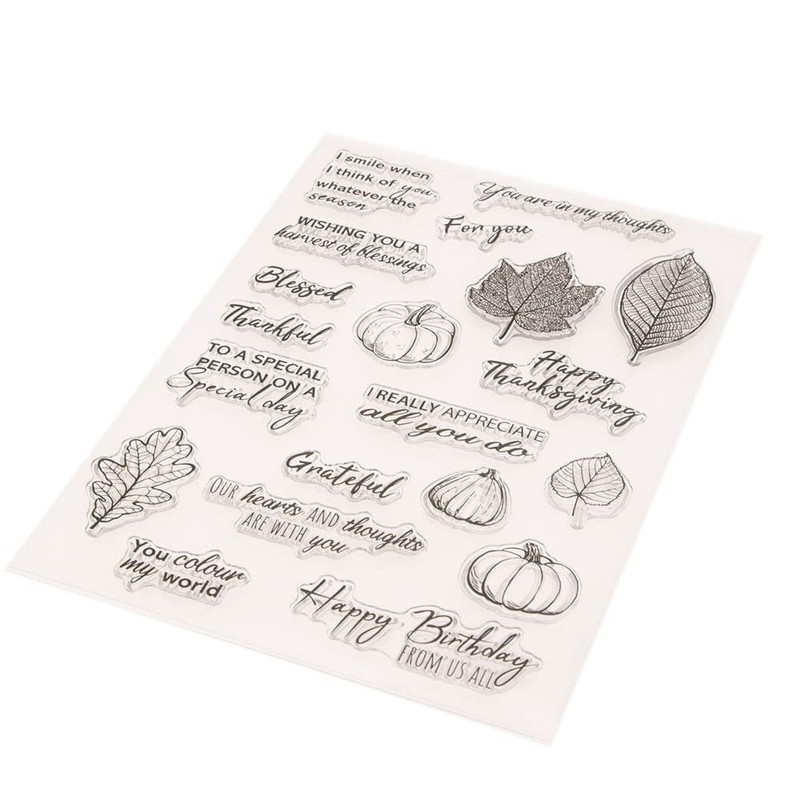 I smile when
I think of you
whatever the
season
You are in my thoughts
For you
WISHING YOU A
harvest of blessings
Blessed
Thankful
Happy
Thanksgiving
TO A SPECIAL
PERSON ON A
Special day
I REALLY APPRECIATE
all you do
Grateful
OUR hearts AND thoughts
ARE WITH you
You colour
my world
Happy Birthday
FROM US ALL